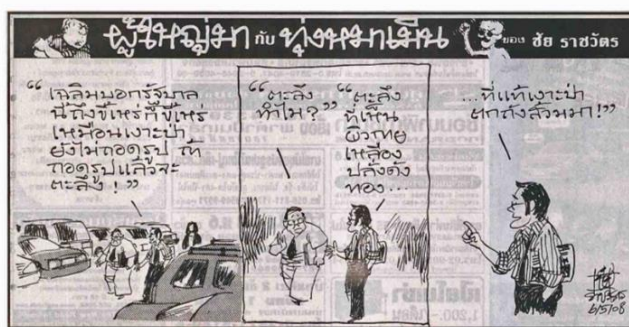 ผู้ใหญ่มา กับ ทุ่งหมาเมิน ของ ชัย ราชวัตร
“เฉลิมบอกรัฐบาล
นี้ถึงขี้เหร่ก็ขี้เหร่
เหมือนเงาะป่า
ยังไม่ถอดรูป ถ้า
ถอดรูปแล้วจะ
ตะลึง!”
“ตะลึง
ทำไม?”
“ตะลึง
ที่เห็น
ผิวกาย
เหลือง
ปลั่งดั่ง
ทอง...
...ที่แท้เงาะป่า
ตกถังส้วมมา!”
6/5/08
1,200.-